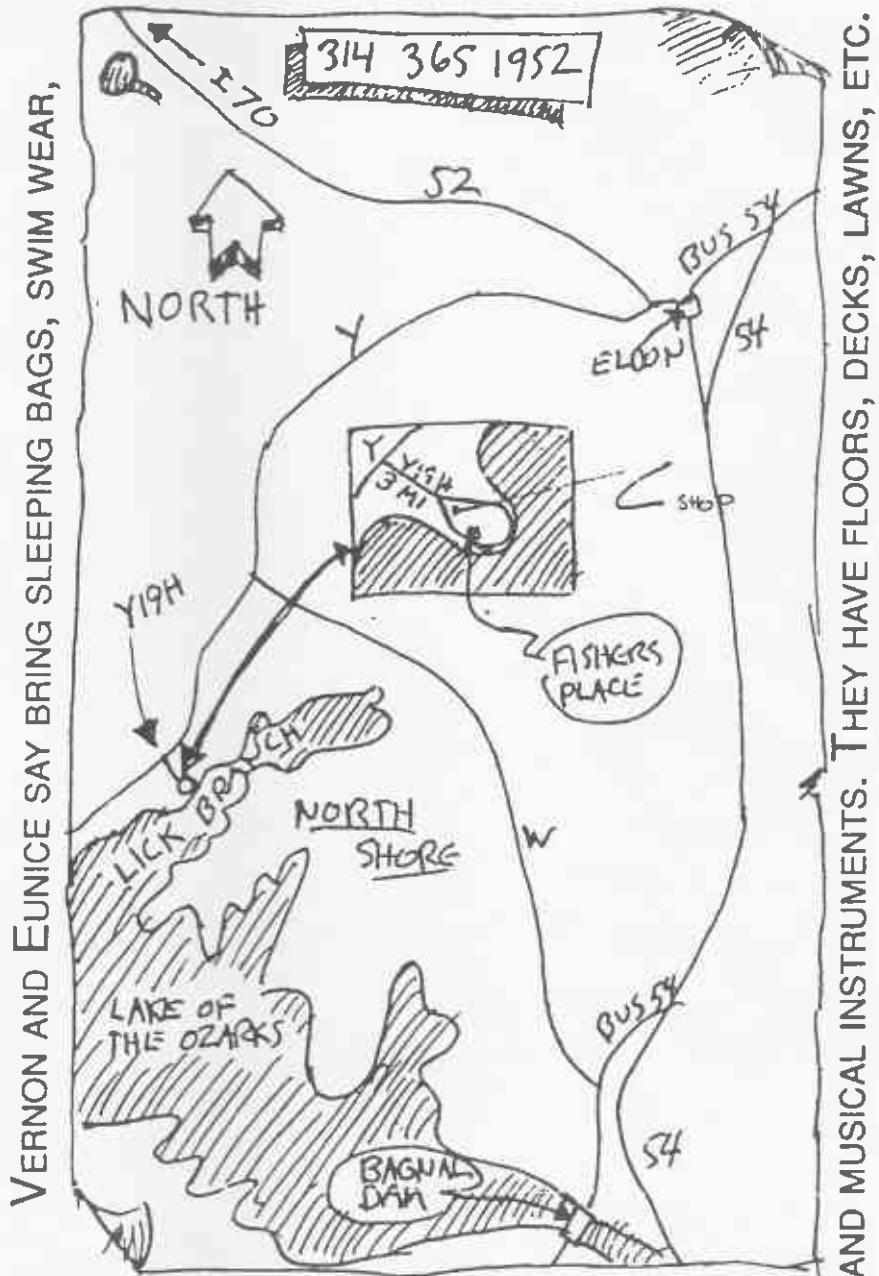 VERNON AND EUNICE SAY BRING SLEEPING BAGS, SWIM WEAR,
314 365 1952
I70
52
BUS 54
NORTH
Y
ELDON
54
Y
Y19H
3 MI
SHOP
Y19H
FISHERS
PLACE
LICK BRANCH
NORTH
SHORE
W
LAKE OF
THE OZARKS
BUS 54
BAGNAL
DAM
54
AND MUSICAL INSTRUMENTS. THEY HAVE FLOORS, DECKS, LAWNS, ETC.